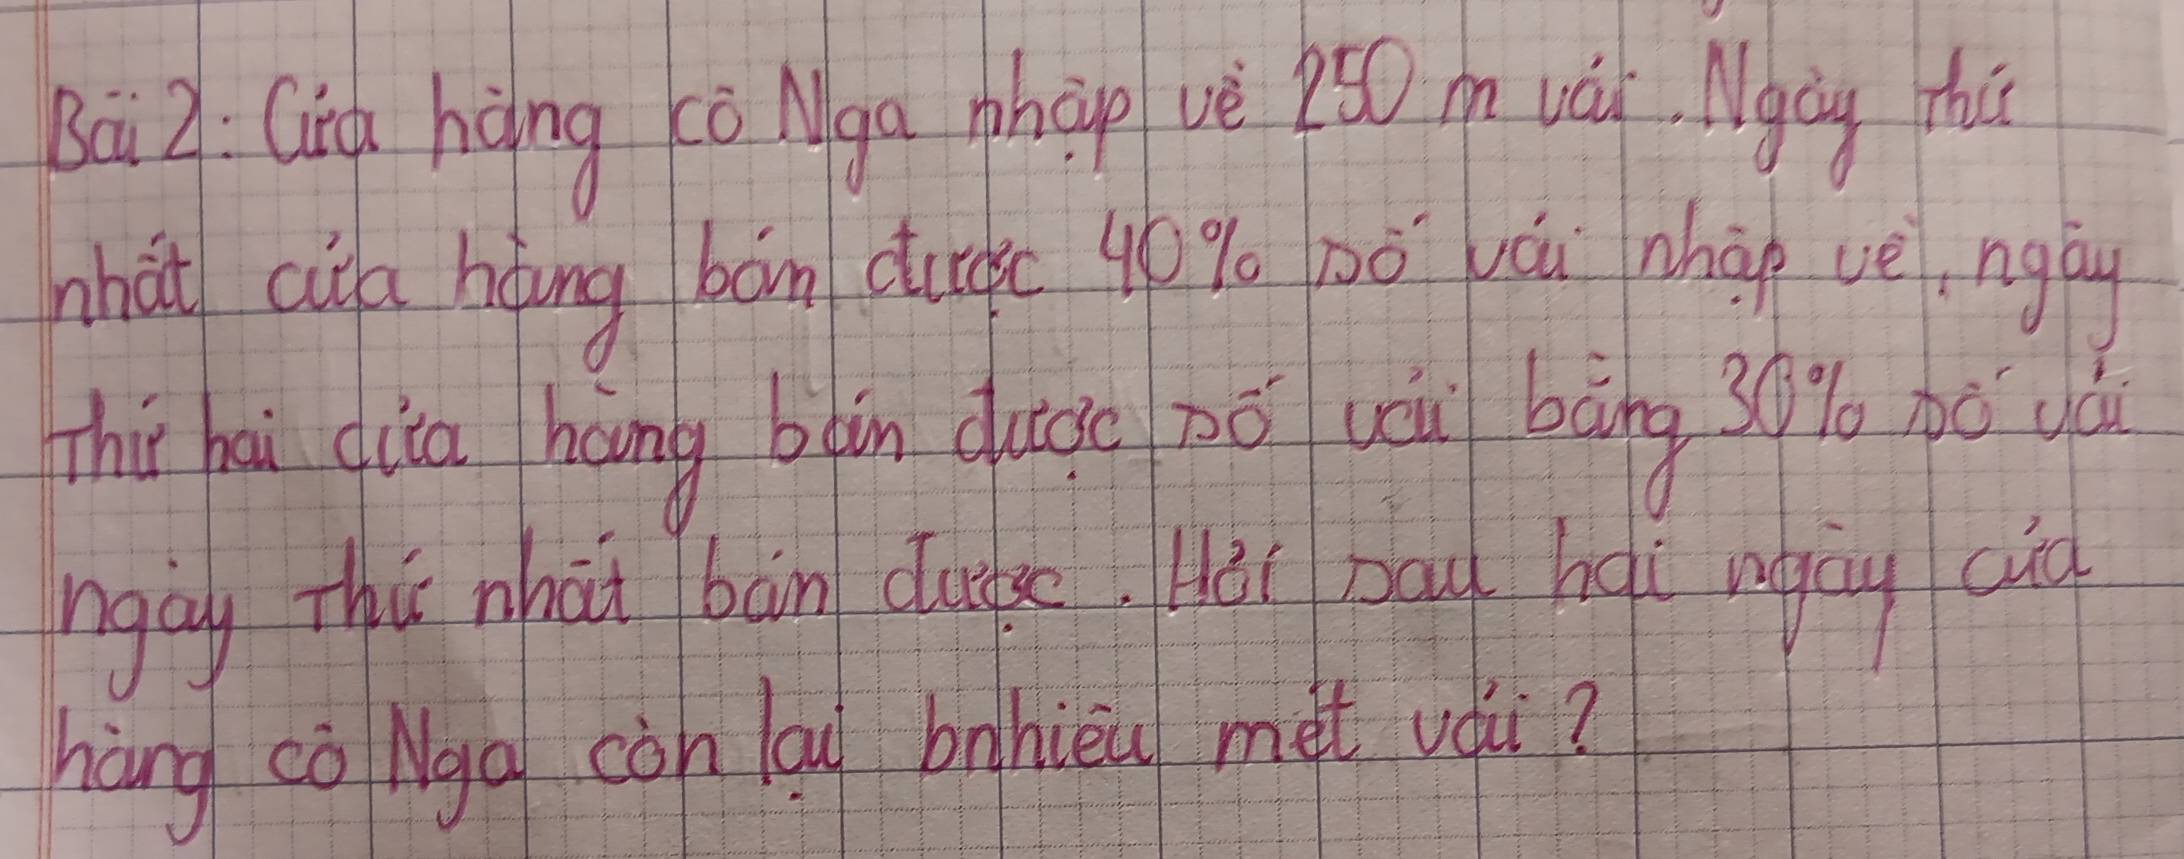 Bài 2: Cửa hàng cô Nga nhập về 250 m vải. Ngày thứ
nhất cửa hàng bán được 40% số vải nhập về, ngày
thứ hai cửa hàng bán được số vải bằng 30% số vải
ngày thứ nhất bán được. Hỏi sau hai ngày cửa
hàng cô Nga còn lại bnhiêu mét vải?